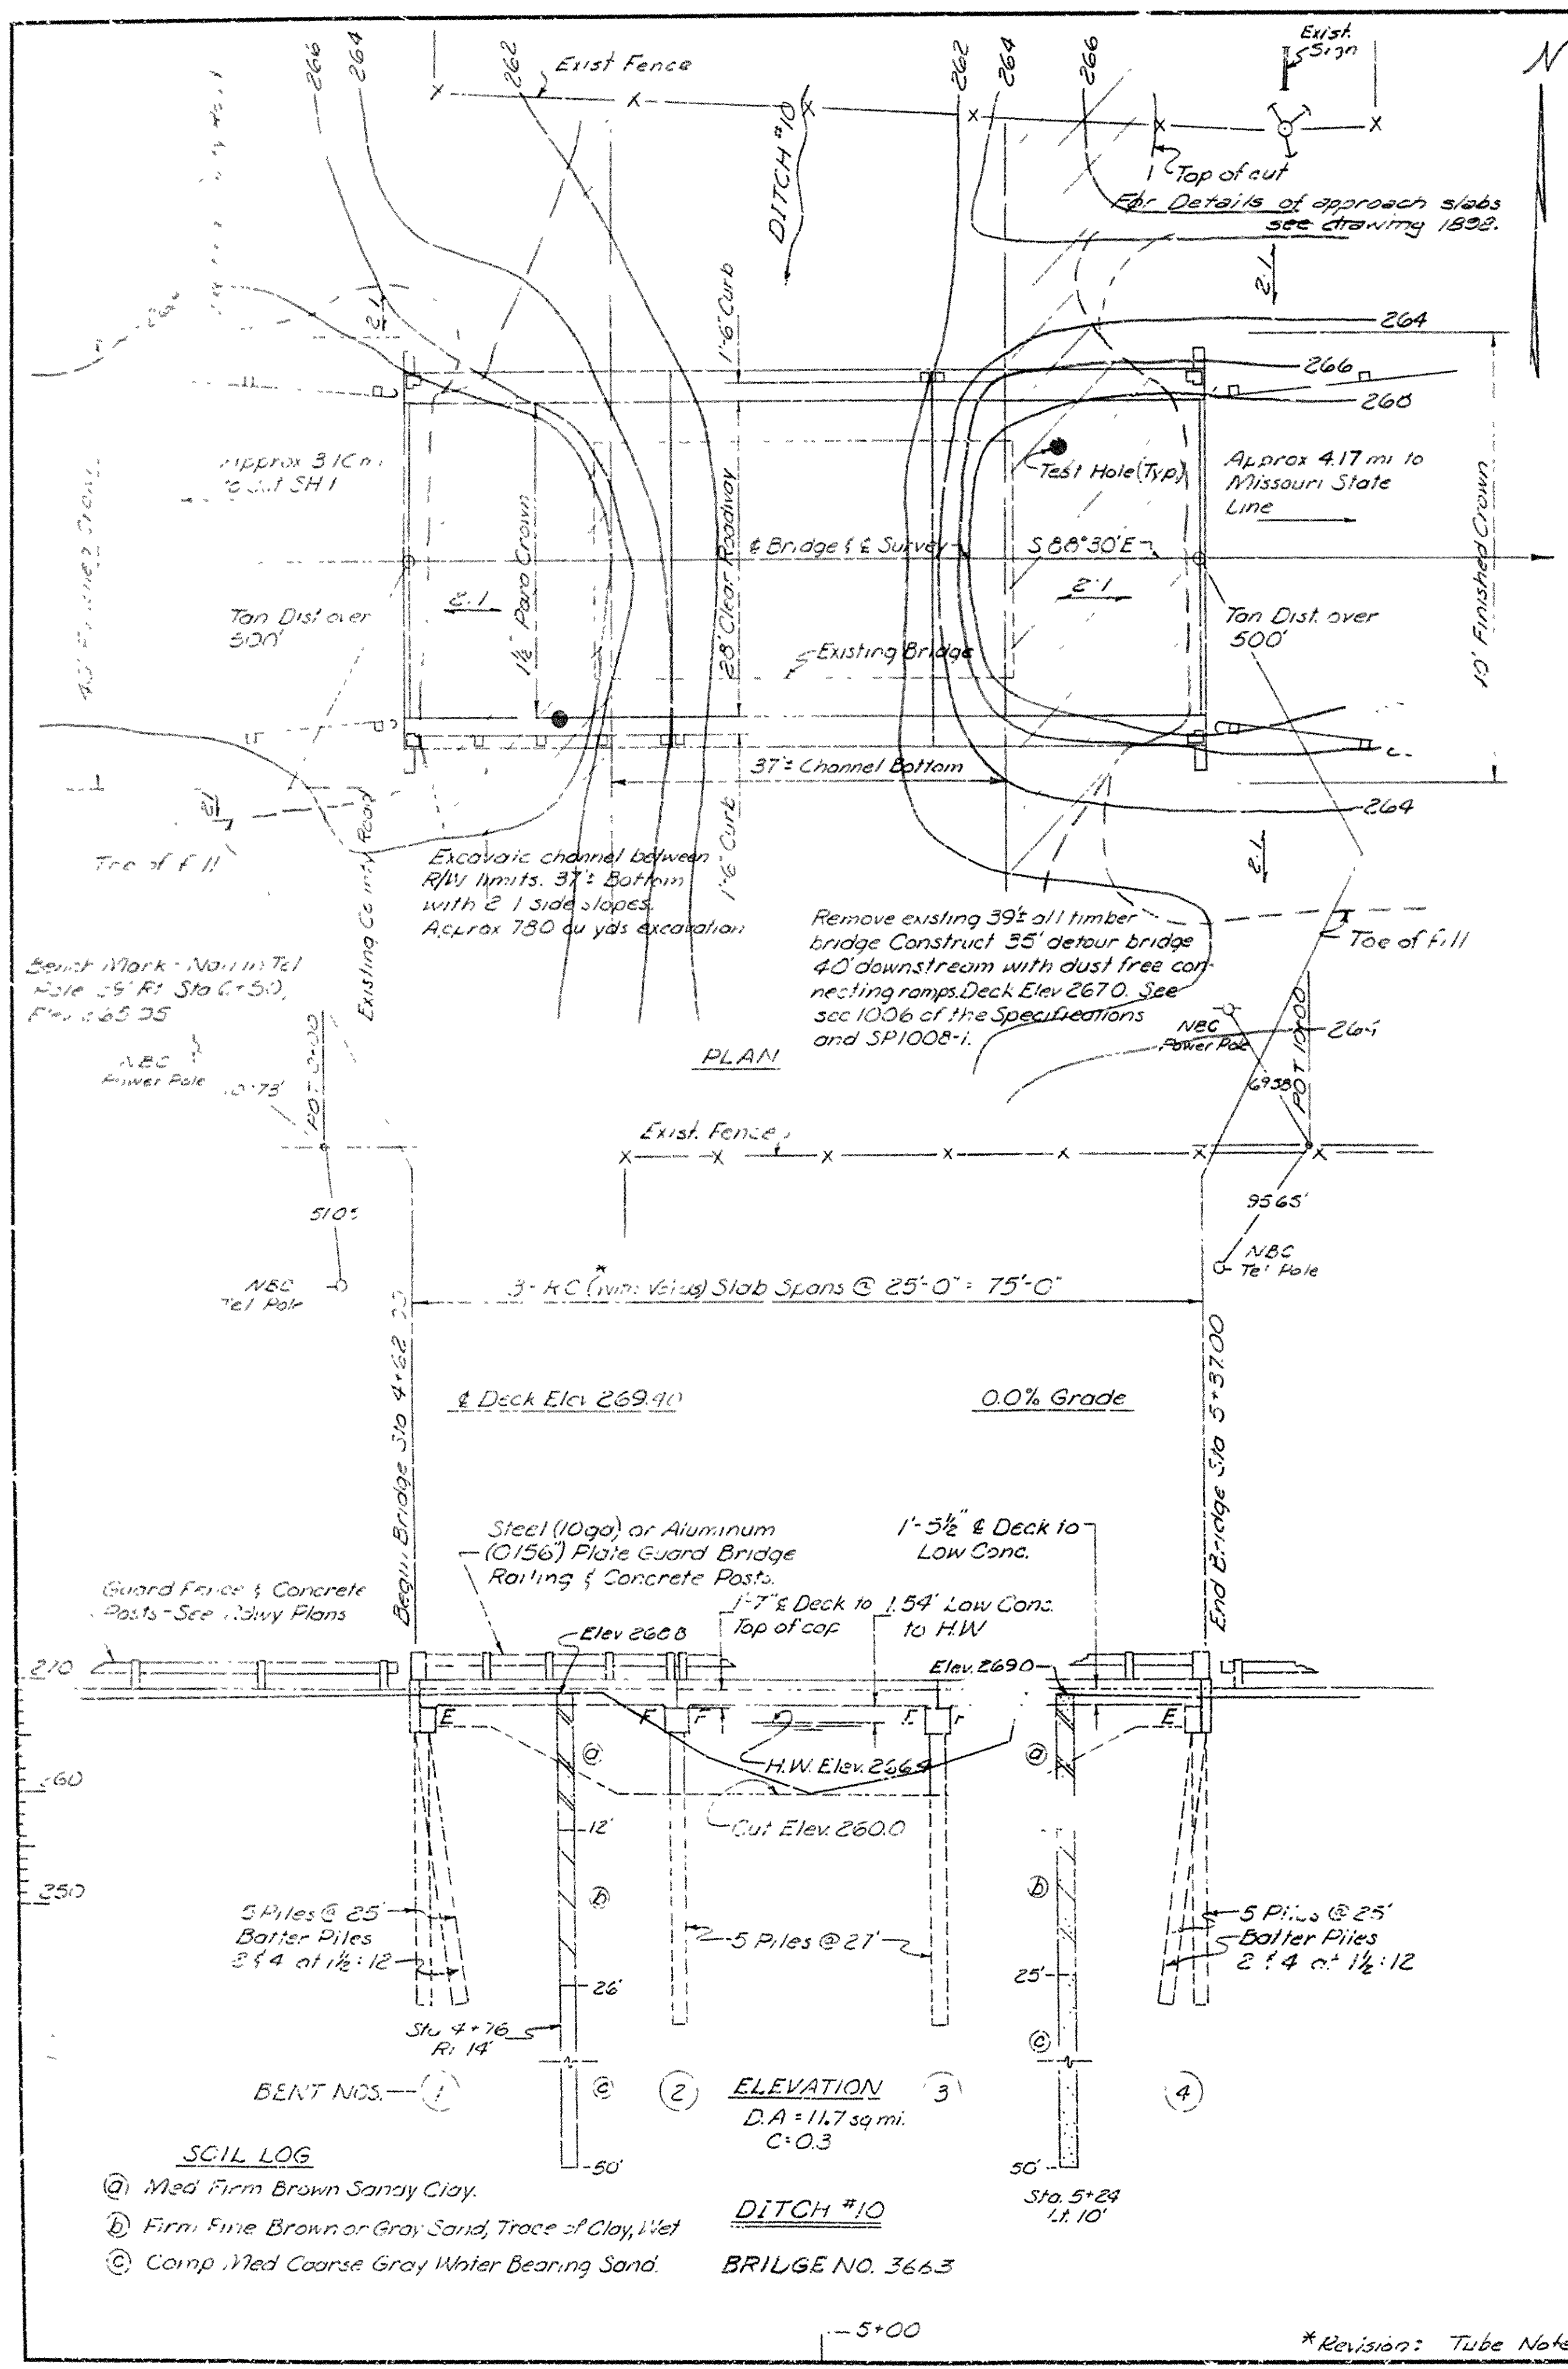 266
264
262
Exist Fence
262
264
266
Exist.
Sign
N
DITCH #10
Top of cut
For Details of approach slabs
see drawing 1892.
2:1
2:1
1'-6" Curb
264
266
268
Approx
SH 1
Test Hole (Typ.)
Approx 4.17 mi to
Missouri State
Line
1½" Para Crown
28' Clear Roadway
₵ Bridge & ₵ Survey
S 88°30'E
Finished Crown
2:1
2:1
Tan Dist over
500'
Tan Dist. over
500'
Existing Bridge
37'± Channel Bottom
264
1'-6" Curb
2:1
2:1
Toe of fill
Existing County Road
Excavate channel between
R/W limits. 37'± Bottom
with 2:1 side slopes.
Approx 780 cu yds excavation
Remove existing 39'± all timber
bridge Construct 35' detour bridge
40' downstream with dust free con-
necting ramps. Deck Elev 267.0. See
sec 1006 of the Specifications
and SP1008-1.
Toe of fill
Bench Mark - Nail in Tel
Pole Rt Sta 6+50,
NBC
Power Pole
NBC
Power Pole
264
69.58
POT 10+00
PLAN
Exist. Fence
95.65'
NBC
Tel Pole
NBC
Tel Pole
3- RC (with Voids)* Slab Spans @ 25'-0" = 75'-0"
Begin Bridge Sta 4+62
End Bridge Sta 5+37.00
₵ Deck Elev 269.90
0.0% Grade
Steel (10ga) or Aluminum
(0.156") Plate Guard Bridge
Railing & Concrete Posts.
1'-5½" ₵ Deck to
Low Conc.
Guard Fence & Concrete
Posts - See Rdwy Plans
1'-7" ₵ Deck to
Top of cap
1.54' Low Conc.
to H.W
Elev 268.8
Elev. 269.0
270
E
F
F
F
F
E
a
a
H.W. Elev. 266.9
260
Cut Elev. 260.0
12'
b
b
250
5 Piles @ 25'
Batter Piles
2 & 4 at 1½:12
5 Piles @ 27'
5 Piles @ 25'
Batter Piles
2 & 4 at 1½:12
26'
25'
Sta 4+76
Rt 14'
c
c
BENT NOS.
1
2
3
4
ELEVATION
D.A = 11.7 sq mi.
C = 0.3
50'
50'
Sta. 5+24
Lt. 10'
SOIL LOG
a Med Firm Brown Sandy Clay.
b Firm Fine Brown or Gray Sand, Trace of Clay, Wet
c Comp. Med Coarse Gray Water Bearing Sand.
DITCH #10
BRIDGE NO. 3663
5+00
*Revision: Tube Note